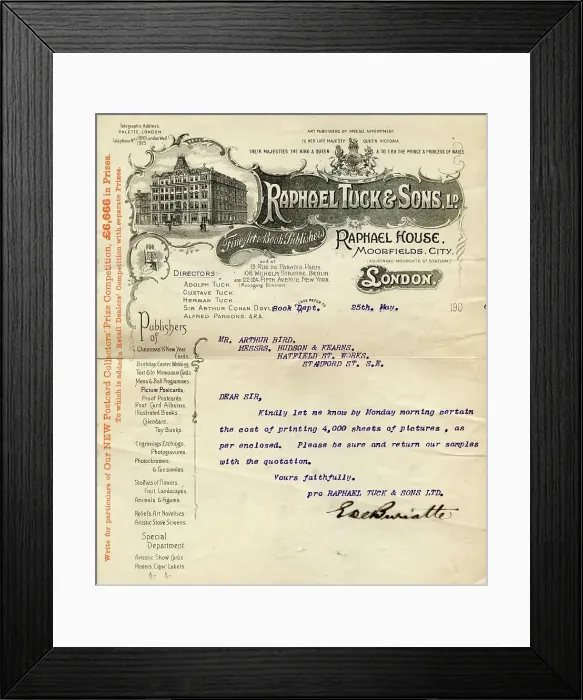 Telegraphic Address.
PALETTE LONDON.
ART PUBLISHERS BY SPECIAL APPOINTMENT
TO HER LATE MAJESTY QUEEN VICTORIA
THEIR MAJESTIES THE KING & QUEEN & TO T.R.H. THE PRINCE & PRINCESS OF WALES
RAPHAEL TUCK & SONS, LD.
Fine Art & Book Publishers
RAPHAEL HOUSE,
MOORFIELDS, CITY,
(ADJOINING MOORGATE ST STATION)
LONDON,
and at
19, RUE DE PARADIS, PARIS.
106, WILHELM STRASSE, BERLIN
AND 122-124, FIFTH AVENUE, NEW YORK
DIRECTORS:
ADOLPH TUCK (Managing Director)
GUSTAVE TUCK
HERMAN TUCK
SIR ARTHUR CONAN DOYLE
ALFRED PARSONS, A.R.A.
Book Dept. 25th. May. 190
Write for particulars of Our NEW Postcard Collectors' Prize Competition, £6,666 in Prizes.
To which is added a Retail Dealers' Competition with separate Prizes.
Publishers
of
Christmas & New Year
Cards
Birthday, Easter, Wedding
Text & In Memoriam Cards
Menu & Ball Programmes
Picture Postcards
Proof Postcards
Post Card Albums
Illustrated Books
Calendars
Toy Books
Engravings, Etchings,
Photogravures
Photochromes,
& facsimiles
Studies of Flowers
Fruit, Landscapes,
Animals & Figures
Reliefs, Art Novelties
Artistic Stove Screens
Special
Department
Artistic Show Cards
Posters, Cigar Labels
&c &c
MR. ARTHUR BIRD,
MESSRS. HUDSON & KEARNS,
HATFIELD ST. WORKS,
STAMFORD ST. S.E.
DEAR SIR,
Kindly let me know by Monday morning certain
the cost of printing 4,000 sheets of pictures , as
per enclosed. Please be sure and return our samples
with the quotation.
Yours faithfully.
pro RAPHAEL TUCK & SONS LTD.